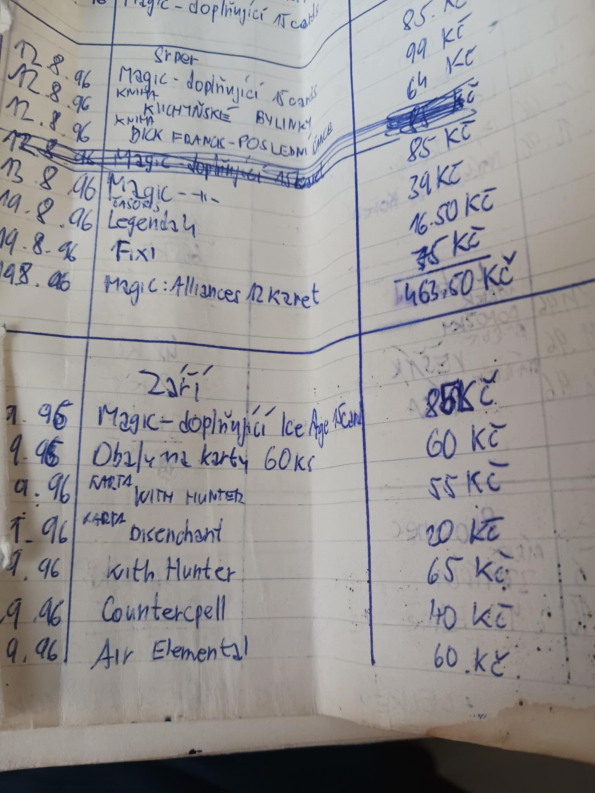 Magic - doplňující 15 cards 85. Kč
Srpen
12.8.96 Magic - doplňující 15 cards 99 Kč
12.8.96 KNIHA KUCHYŇSKÉ BYLINKY 64 Kč
12.8.96 KNIHA DICK FRANCIS - POSLEDNÍ
12.8.96 Magic - doplňující 85 Kč
13.8.96 Magic -11- 39 Kč
19.8.96 ČASOPIS Legenda 4 16.50 Kč
19.8.96 Fixi 75 Kč
19.8.96 Magic: Alliances 12 karet 463.50 Kč
Září
9.96 Magic - doplňující Ice Age 15 card 85 Kč
9.96 Obaly na karty 60 ks 60 Kč
9.96 KARTA WITH HUNTER 55 Kč
9.96 KARTA Disenchant 20 Kč
9.96 With Hunter 65 Kč
9.96 Countercpell 40 Kč
9.96 Air Elemental 60. Kč